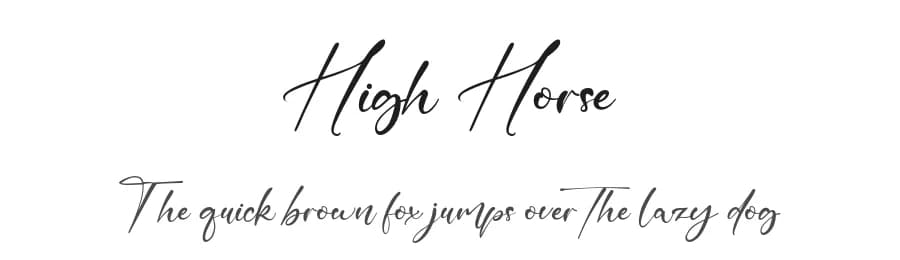 High Horse
The quick brown fox jumps over the lazy dog